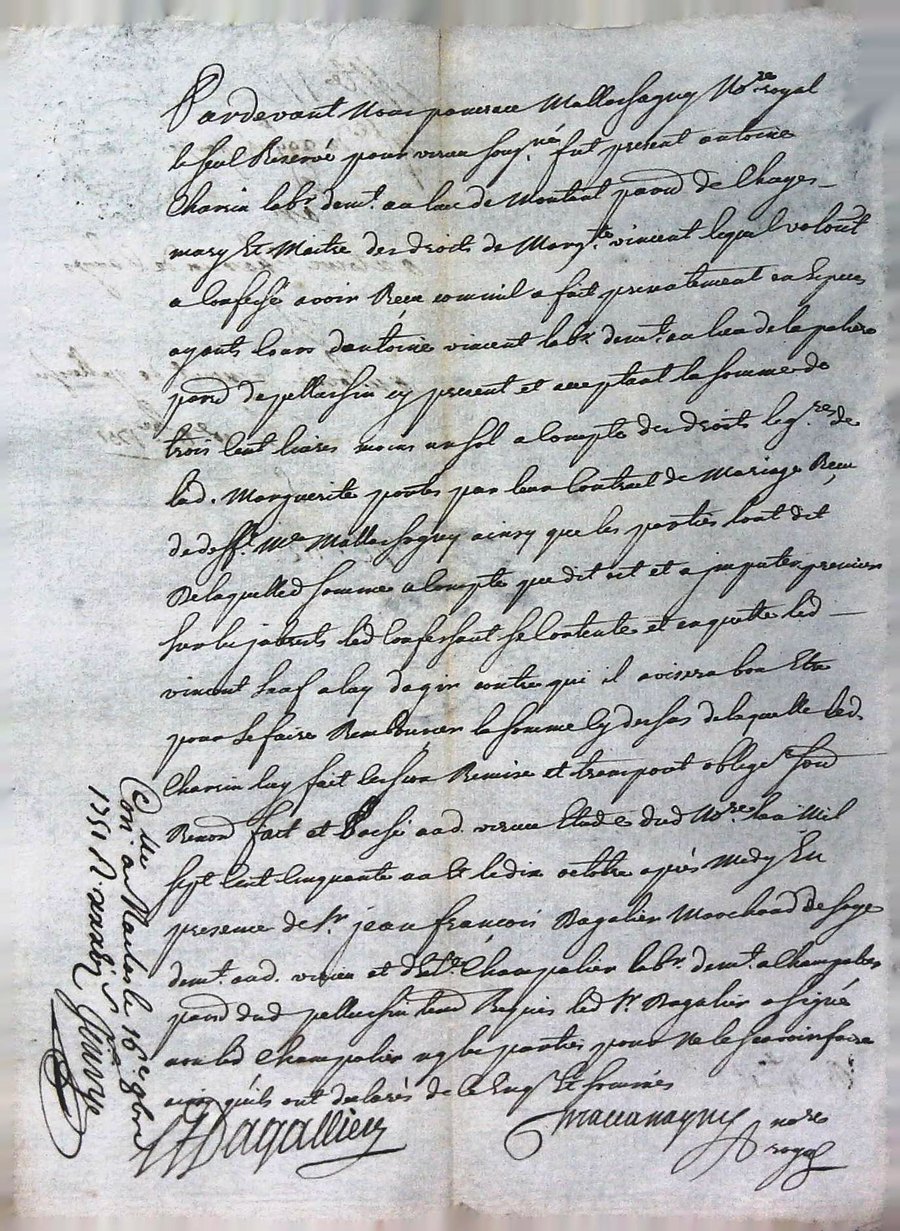 Pardevant Nous pancrace Mallassagny No.re royal
le seul Reservé pour virieu sousné. fut present antoine
Charsin labr. demt. au lieu de Montant parod de Chages
mary Et Maitre des droits de Margte. vincent lequel volont
a Confessé avoir Receu comme il a fait presentement en Especes
ayants Cours dantoine vincent labr. demt. au lieu de la paliere
parod de pellussin cy present et acceptant la somme de
trois Cent livres moins un sol a Compte des droits legres. de
lad. Marguerite portés par leur Contract de Mariage Receu
de deff. Me Mallassagny ainsy que les parties l'ont dit
De laquelle somme a Compte que dit est et a imputer premier
sur les jnterets led Confessant se Contente et en quitte led
vincent sauf a luy d'agir contre qui il avisera bon Etre
pour se faire Rembourser la somme cy dessus de laquelle led.
Charsin luy fait Cession Remise et transport oblige soud
Renond fait et Passé aud. virieu Etude dud Nore. l'an Mil
sept Cent Cinquante un Et le dix octobre après Midy En
presence de sr. jean francois Dagalier Marchand de soye
demt. aud. virieu et d'Ete. Champalier labr. demt. a Champalier
parod dud pellussin temd Requis led sr. Dagalier a signé
non led Champalier ny les parties pour Ne le scavoir faire
ainsy quils ont declarés de ce Enqs. Et sommés
JF Dagallier Mallassagny nore
royal
Con.llé a Maclas le 16e 9bre
1751 R.